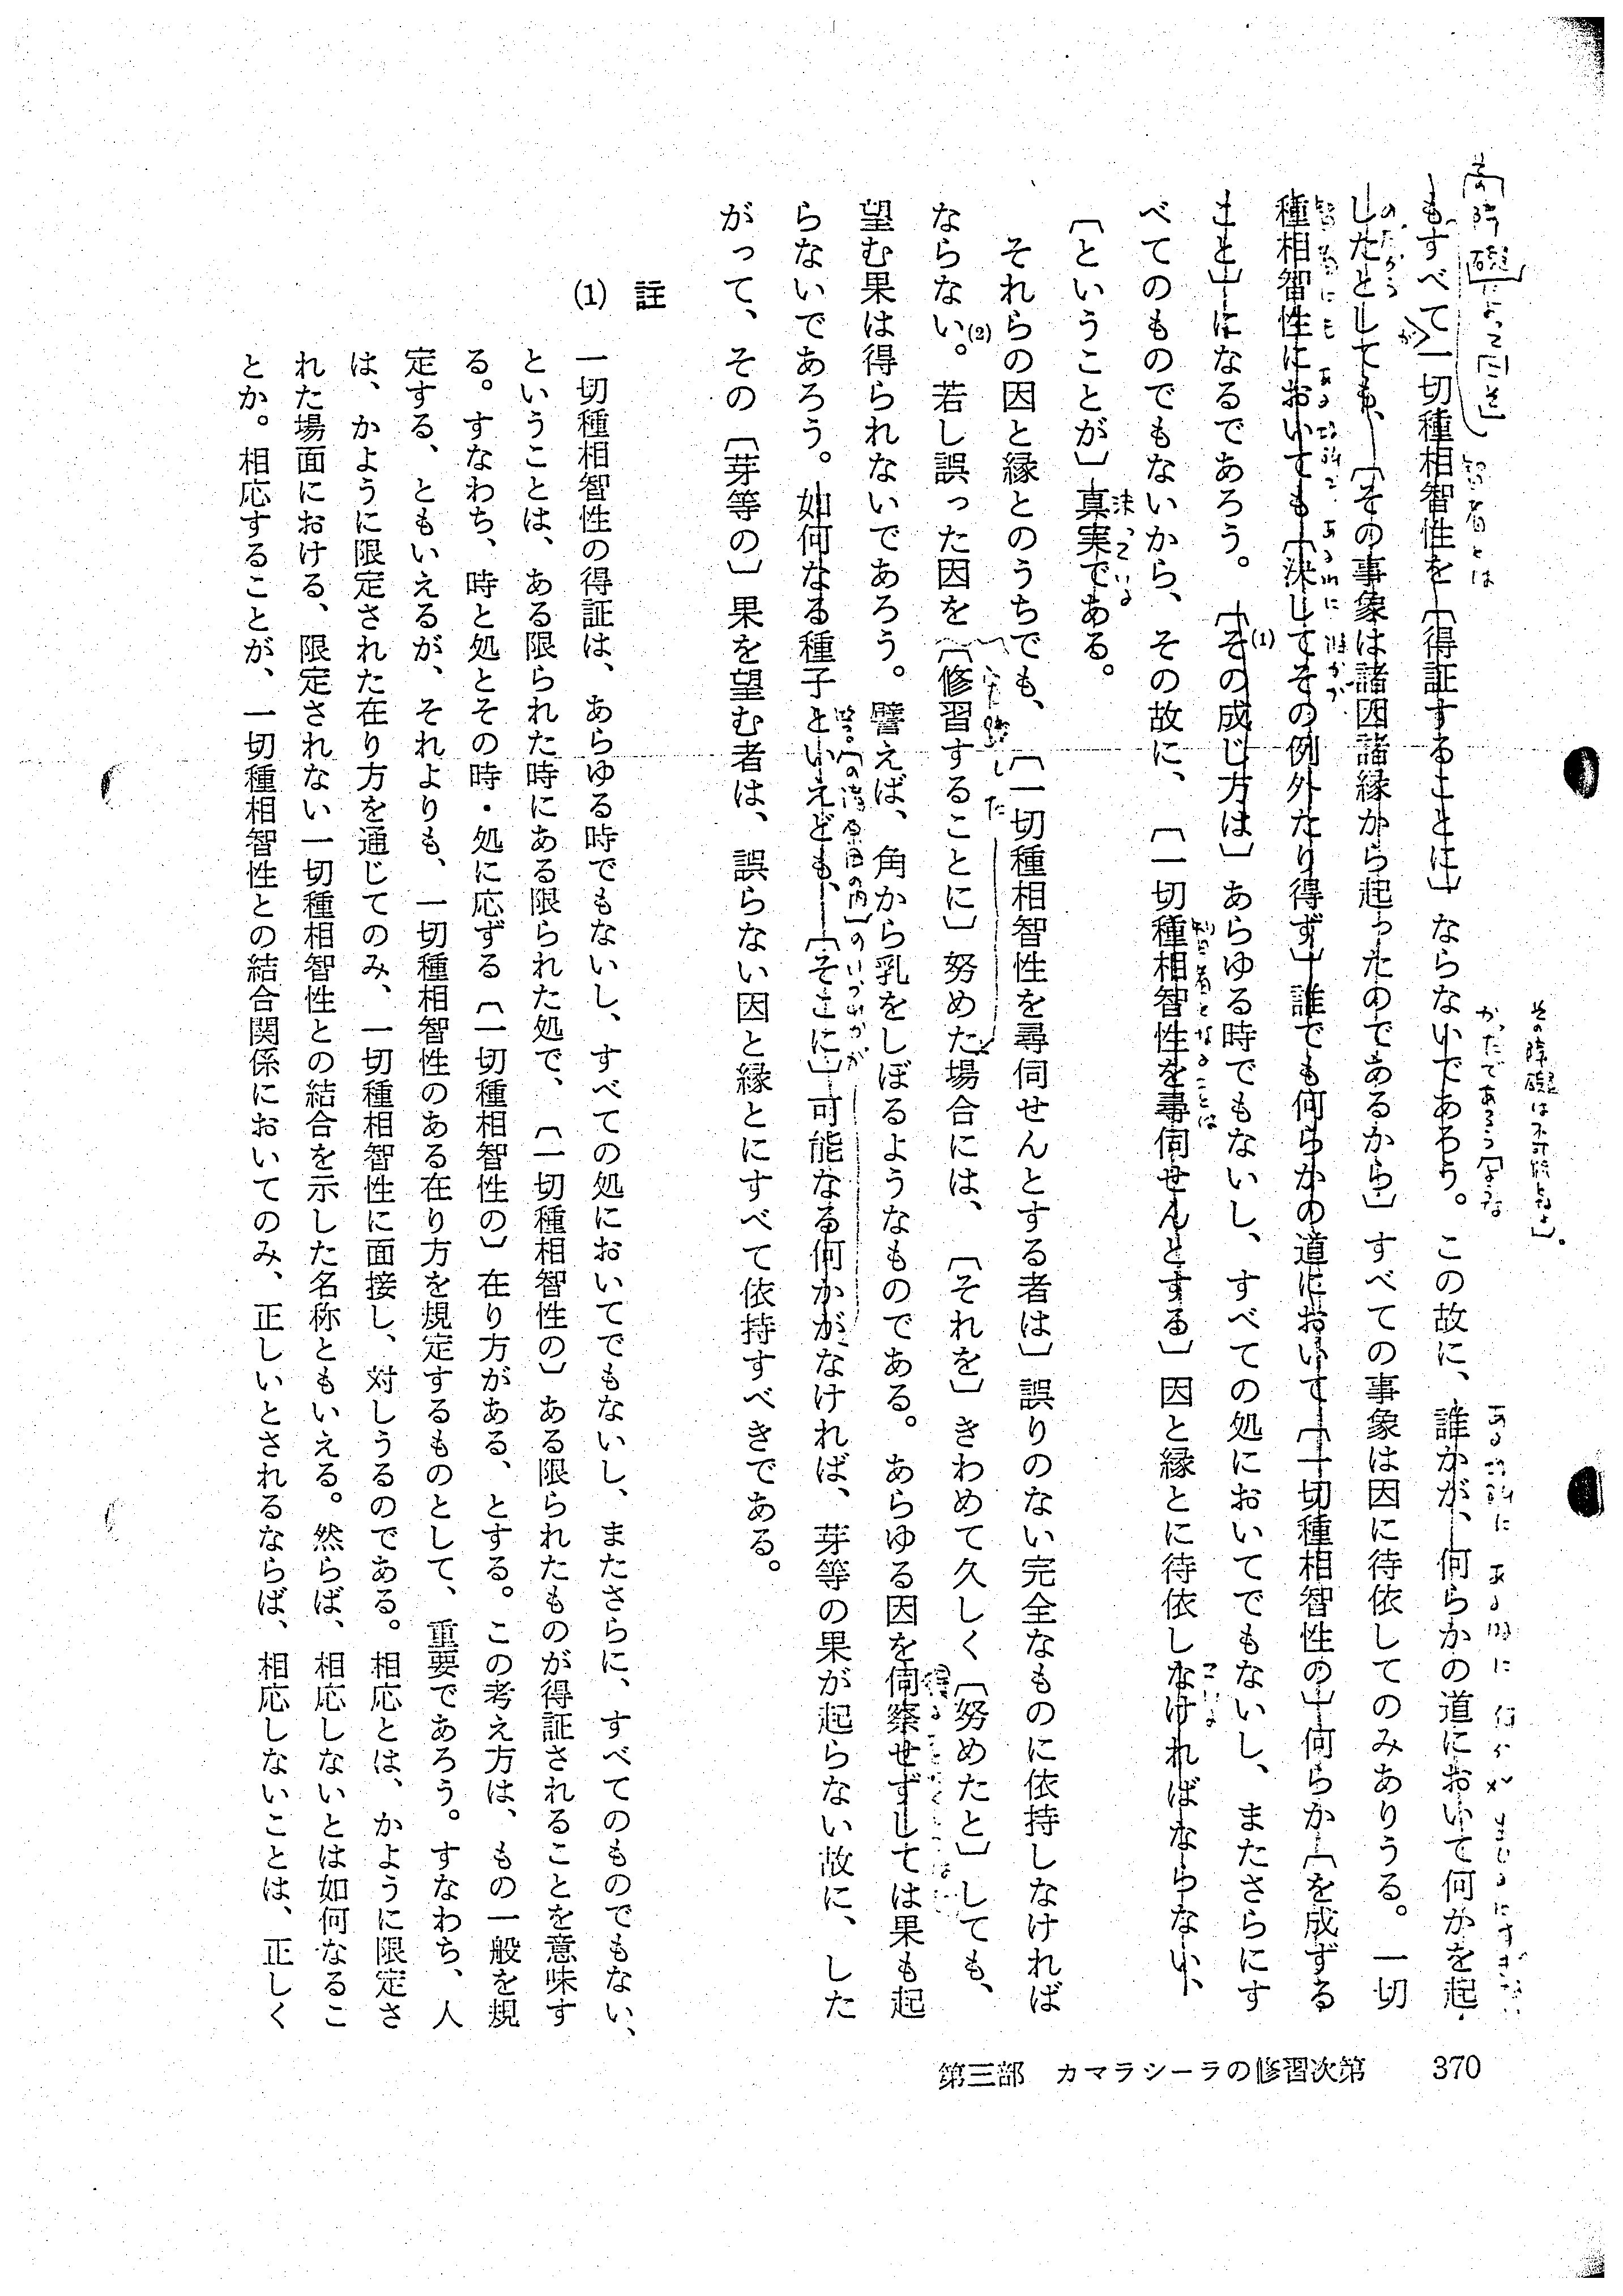 もすべて一切種相智性を〔得証することに〕ならないであろう。この故に、誰かが、何らかの道において何かを起
したとしても、〔その事象は諸因諸縁から起ったのであるから〕すべての事象は因に待依してのみありうる。一切
種相智性においても〔決してその例外たり得ず〕誰でも何らかの道において〔一切種相智性の〕何らか〔を成ずる
こと〕になるであろう。〔その成じ方は〕あらゆる時でもないし、すべての処においてでもないし、またさらにす
(1)
べてのものでもないから、その故に、〔一切種相智性を尋伺せんとする〕因と縁とに待依しなければならない、
〔ということが〕真実である。
それらの因と縁とのうちでも、〔一切種相智性を尋伺せんとする者は〕誤りのない完全なものに依持しなければ
ならない。若し誤った因を〔修習することに〕努めた場合には、〔それを〕きわめて久しく〔努めたと〕しても、
(2)
望む果は得られないであろう。譬えば、角から乳をしぼるようなものである。あらゆる因を伺察せずしては果も起
らないであろう。如何なる種子といえども、〔そこに〕可能なる何かがなければ、芽等の果が起らない故に、した
がって、その〔芽等の〕果を望む者は、誤らない因と縁とにすべて依持すべきである。
註
(1)
一切種相智性の得証は、あらゆる時でもないし、すべての処においてでもないし、またさらに、すべてのものでもない、
ということは、ある限られた時にある限られた処で、〔一切種相智性の〕ある限られたものが得証されることを意味す
る。すなわち、時と処とその時・処に応ずる〔一切種相智性の〕在り方がある、とする。この考え方は、もの一般を規
定する、ともいえるが、それよりも、一切種相智性のある在り方を規定するものとして、重要であろう。すなわち、人
は、かように限定された在り方を通じてのみ、一切種相智性に面接し、対しうるのである。相応とは、かように限定さ
れた場面における、限定されない一切種相智性との結合を示した名称ともいえる。然らば、相応しないとは如何なるこ
とか。相応することが、一切種相智性との結合関係においてのみ、正しいとされるならば、相応しないことは、正しく
第三部 カマラシーラの修習次第 370
智者とは
決っている
その障礙は不可能となる〕。
かったであろう
した